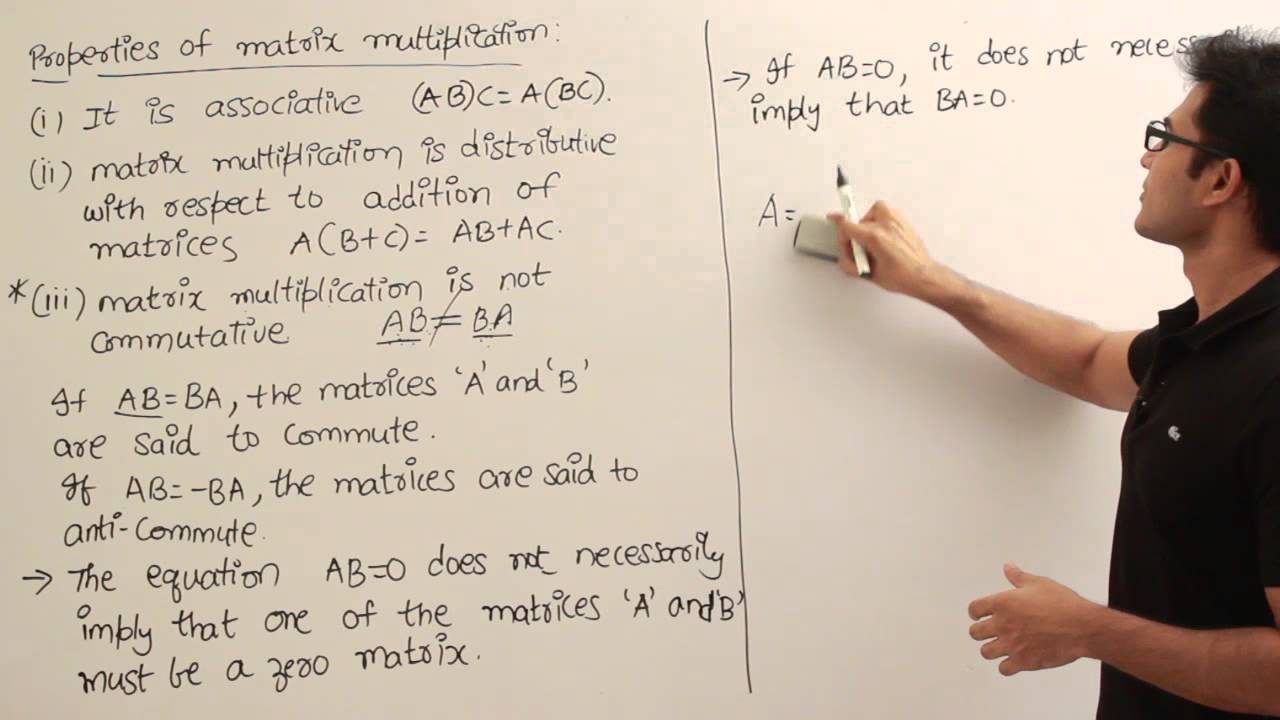 Properties of matrix multiplication:
(i) It is associative (AB)C = A(BC).
(ii) matrix multiplication is distributive
with respect to addition of
matrices A(B+C) = AB+AC.
*(iii) matrix multiplication is not
commutative AB ≠ BA
If AB=BA, the matrices 'A' and 'B'
are said to commute.
If AB=-BA, the matrices are said to
anti-commute.
→ The equation AB=0 does not necessarily
imply that one of the matrices 'A' and 'B'
must be a zero matrix.
→ If AB=0, it does not
imply that BA=0.
A=